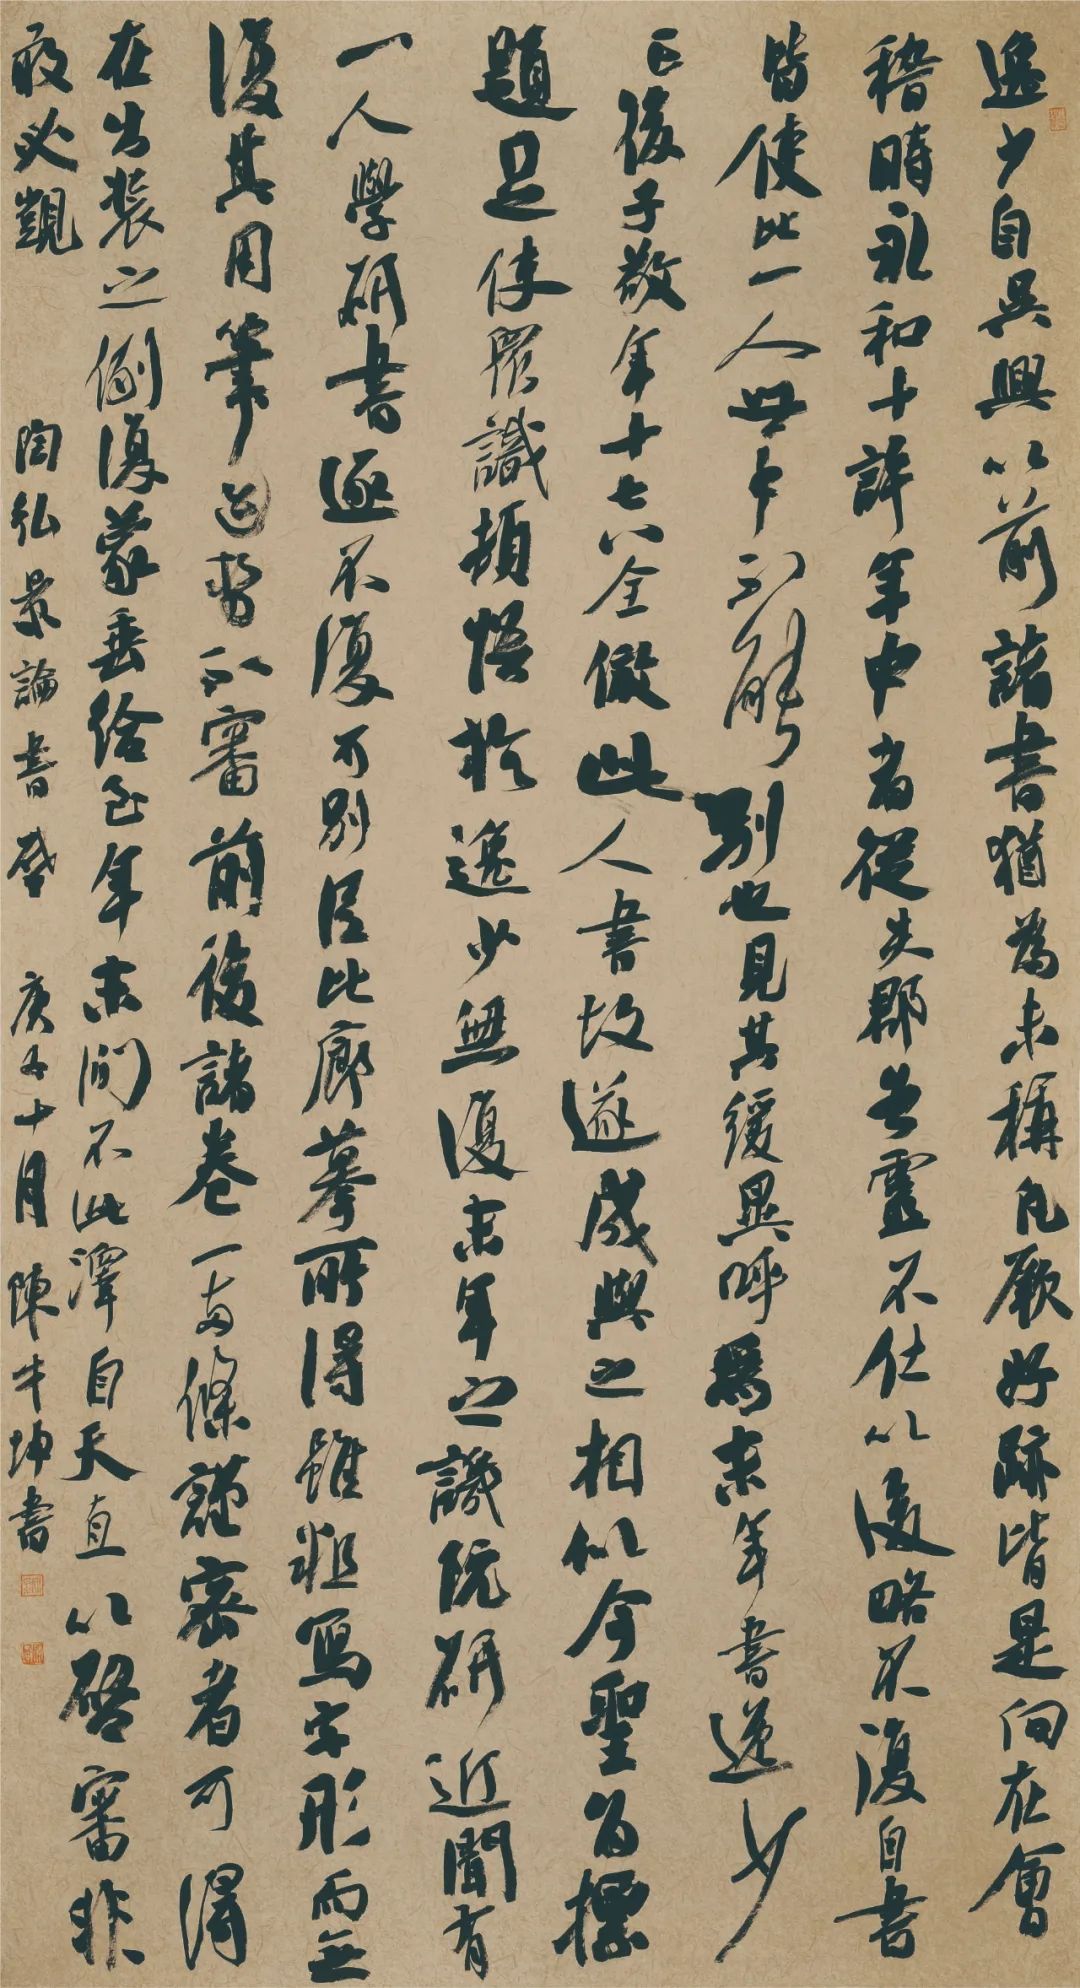 逸少自吳興以前諸書猶為未稱凡厥好跡皆是向在會
稽時永和十許年中者從失郡告靈不仕以後略不復自書
皆使此一人世中不能別也見其緩異呼為末年書逸少
亡後子敬年十七八全倣此人書故遂成與之相似今聖旨標
題足使眾識頓悟於逸少無復末年之譏阮研近聞有
一人學研書遂不復可別臣比廊摹所得雖粗寫字形而無
復其用筆跡勢不審前後諸卷一兩條謹密者可得
在出裝之例復蒙垂給至年末間不此澤自天直以啓審非
敢必覬 陶弘景論書啓 庚子十月 陳坤書